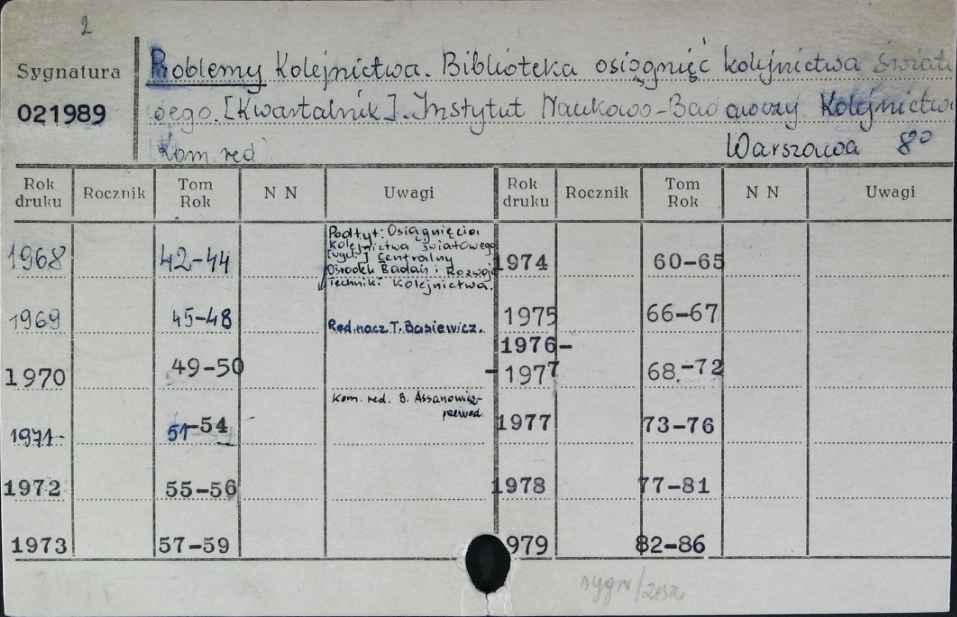 2
Sygnatura
021989
Problemy Kolejnictwa. Biblioteka osiągnięć kolejnictwa świato
wego. [Kwartalnik]. Instytut Naukowo-Badawczy Kolejnictwa
Kom. red Warszawa 8°
Rok druku Rocznik Tom Rok N N Uwagi Rok druku Rocznik Tom Rok N N Uwagi
1968 42-44 1974 60-65
Podtyt: Osiągnięcia
Kolejnictwa światowego
[wyd] Centralny
Ośrodek Badań i Rozwoju
Techniki Kolejnictwa.
1969 45-48 Red. nacz. T. Basiewicz. 1975 66-67
1970 49-50 1976-
-1977 68-72
Kom. red. B. Assanowicz-
przewod.
1971 51-54 1977 73-76
1972 55-56 1978 77-81
1973 57-59 979 82-86
sygn/zesz.